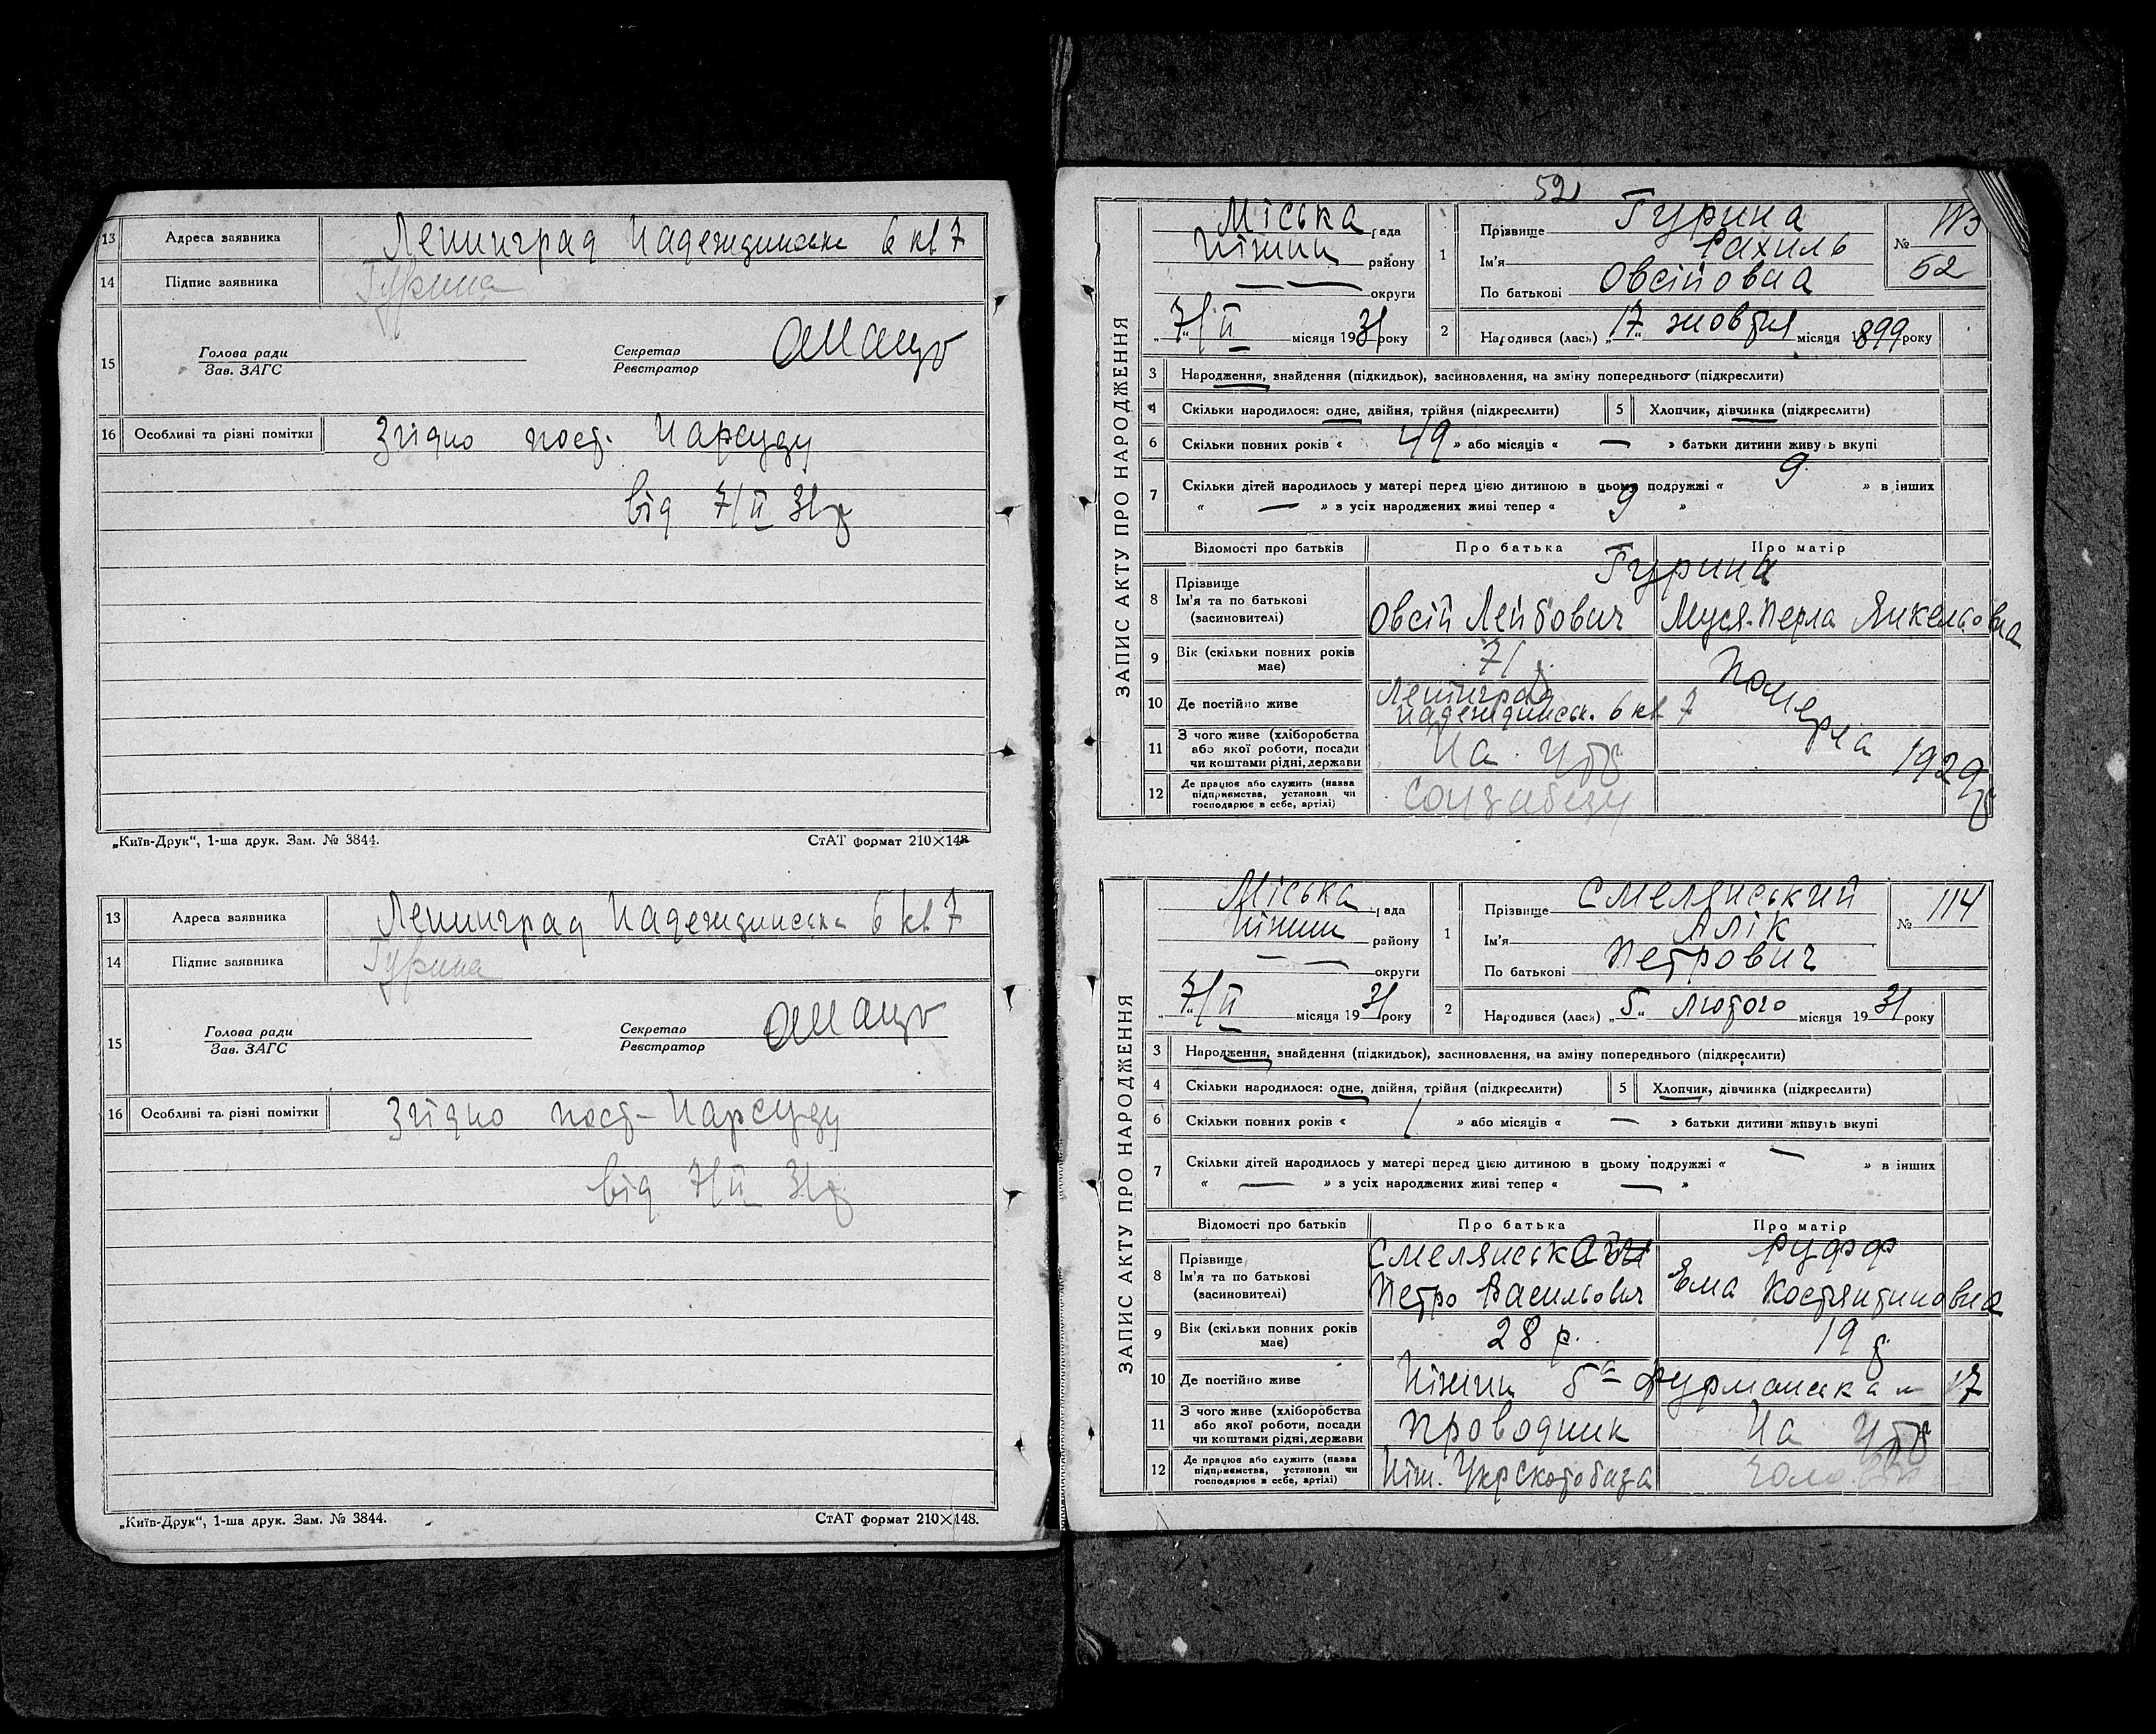 13 Адреса заявника Ленинград Надеждинська 6 кв 7
14 Підпис заявника Гурина
15 Голова ради Секретар
Зав. ЗАГС Реєстратор
16 Особливі та різні помітки Згідно пост. Нарсуду
від 7/II 31 р
„Київ-Друк“, 1-ша друк. Зам. № 3844. СтАТ формат 210×148
13 Адреса заявника Ленинград Надеждинська 6 кв 7
14 Підпис заявника Гурина
15 Голова ради Секретар
Зав. ЗАГС Реєстратор
16 Особливі та різні помітки Згідно пост- Нарсуду
від 7/II 31 р
„Київ-Друк“, 1-ша друк. Зам. № 3844. СтАТ формат 210×148.
52
ЗАПИС АКТУ ПРО НАРОДЖЕННЯ
Міська рада
Ніжин району
— — округи
„7“/II місяця 1931 року
1 Прізвище Гурина
Ім'я Рахиль
По батькові Овсійовна
№ 113
52
2 Народився (лась) „17“ жовтня місяця 1899 року
3 Народження, знайдення (підкидьок), засиновлення, на зміну попереднього (підкреслити)
4 Скільки народилося: одне, двійня, трійня (підкреслити) 5 Хлопчик, дівчинка (підкреслити)
6 Скільки повних років « 49 » або місяців « — » батьки дитини живуть вкупі
7 Скільки дітей народилось у матері перед цією дитиною в цьому подружжі « 9 » в інших
« — » з усіх народжених живі тепер « 9 »
Відомості про батьків Про батька Про матір
8 Прізвище Гурина
Ім'я та по батькові Овсій Лейбович Муся-Перла Янкельовна
(засиновителі)
9 Вік (скільки повних років має) 71 Померла 1929 р
10 Де постійно живе Ленінград
Надеждинськ. 6 кв 7
11 З чого живе (хліборобства або якої роботи, посади чи коштами рідні, держави На утр
12 Де працює або служить (назва підприємства, установи чи господарює в себе, артілі) Соцзабезу
ЗАПИС АКТУ ПРО НАРОДЖЕННЯ
Міська рада
Ніжин району
— — округи
„7“/II місяця 1931 року
1 Прізвище Смелянський
Ім'я Алік
По батькові Петрович
№ 114
2 Народився (лась) „5“ лютого місяця 1931 року
3 Народження, знайдення (підкидьок), засиновлення, на зміну попереднього (підкреслити)
4 Скільки народилося: одне, двійня, трійня (підкреслити) 5 Хлопчик, дівчинка (підкреслити)
6 Скільки повних років « 1 » або місяців « — » батьки дитини живуть вкупі
7 Скільки дітей народилось у матері перед цією дитиною в цьому подружжі « — » в інших
« — » з усіх народжених живі тепер « — »
Відомості про батьків Про батька Про матір
8 Прізвище Руфф
Ім'я та по батькові Петро Васильович Ема Костянтиновна
(засиновителі)
9 Вік (скільки повних років має) 28 р. 19 р
10 Де постійно живе Ніжин Фурманська 17
11 З чого живе (хліборобства або якої роботи, посади чи коштами рідні, держави Проводник На утр
12 Де працює або служить (назва підприємства, установи чи господарює в себе, артілі) Ніж. Укрскотобаза